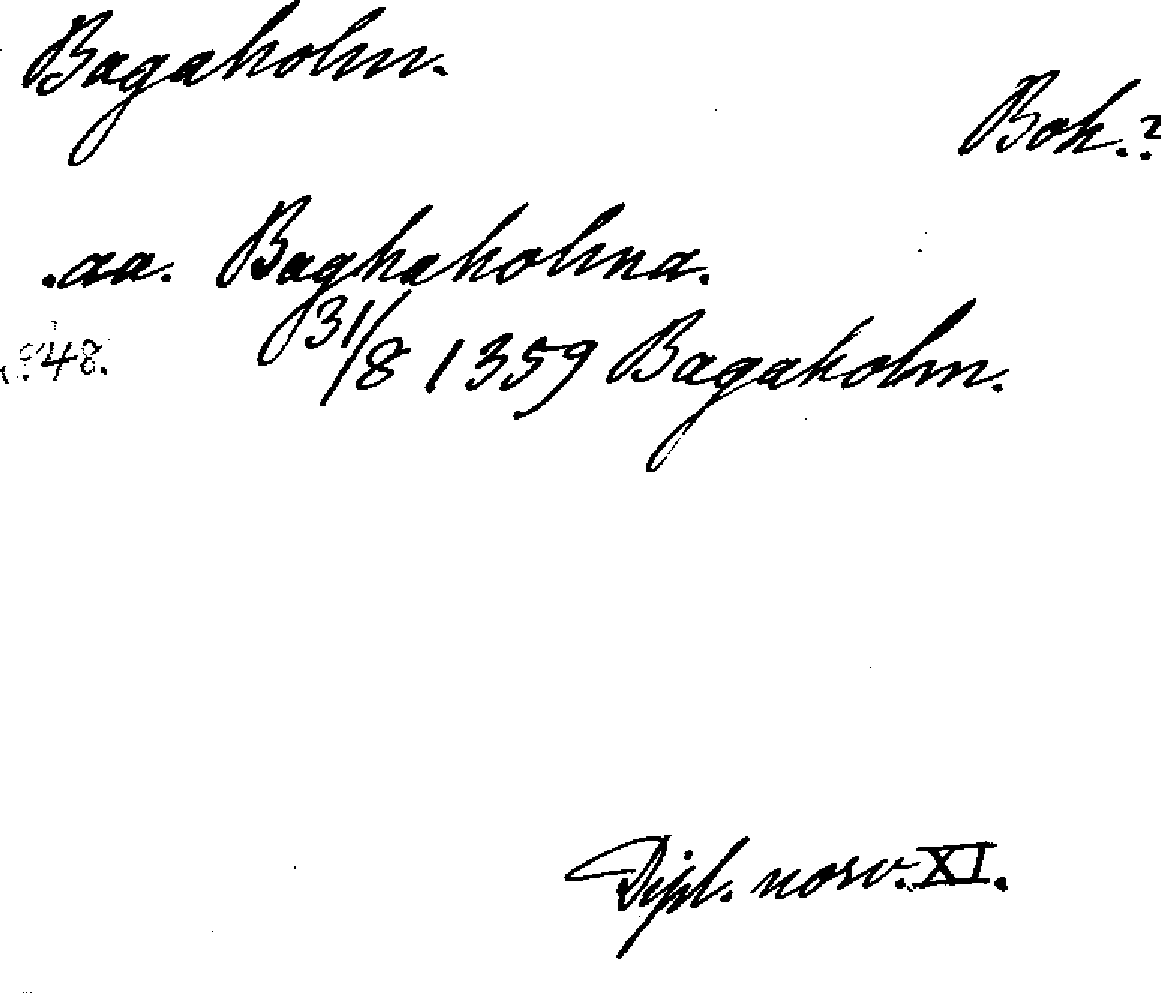 Bagaholm.
Boh.?
.aa. Baghaholma.
48. 31/8 1359 Bagaholm.
Dipl. norv. XI.